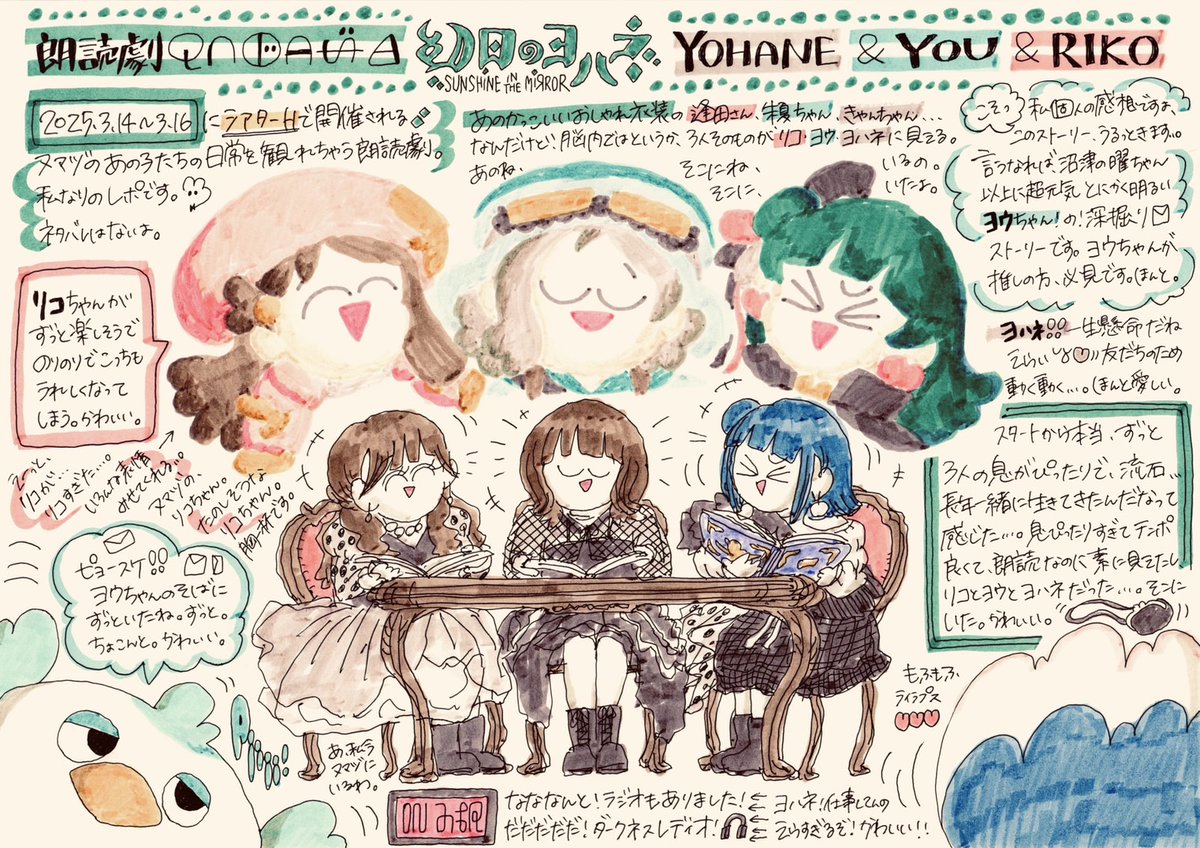 朗読劇
幻日のヨハネ
SUNSHINE IN THE MIRROR
YOHANE & YOU & RIKO
2025.3.14〜3.16 にシアターHで開催される
ヌマヅのあの子たちの日常を観れちゃう朗読劇。
私なりのレポです。
ネタバレはないよ。
あのかっこいいおしゃれ衣装の逢田さん、朱夏ちゃん、きゃんちゃん...
なんだけど、脳内ではというか、3人そのものがリコ・ヨウ・ヨハネに見えてる。
あのね、
そこにね、
いるの。
そこに、
いたよ。
こそっ
私個人の感想ですよ、
このストーリー、うるっときます。。
言うなれば、沼津の曜ちゃん
以上に超元気とにかく明るい
ヨウちゃん!の!深掘り
ストーリーです。ヨウちゃんが
推しの方、必見です。ほんと。
ヨハネ!!一生懸命だね
えらい 友だちのため
動く動く...。ほんと愛しい。
リコちゃんが
ずっと楽しそうで
のりのりでこっちも
うれしくなって
しまう。かわいい。
リコが...
リコすぎた...。
いろんな表情
みせてくれる...。
ヌマヅの、
リコちゃん。
たのしそうな
リコちゃん。
スタートから本当、ずっと
3人の息がぴったりで、流石...
長年一緒に生きてきたんだなって
感じた...。息ぴったりすぎてテンポ
良くて、朗読なのに素に見えたし
リコとヨウとヨハネだった...。そこに
いた。かわいい。
ピョースケ!!
ヨウちゃんのそばに
ずっといたね。ずっと。
ちょこんと。かわいい。
あ、私今
ヌマヅに
いるわ。
もふもふ
ライラプス
なななんと!ラジオもありました!
だだだだだ!ダークネスレディオ!
ヨハネ!仕事してんの
えらすぎるぞ!かわいい!!